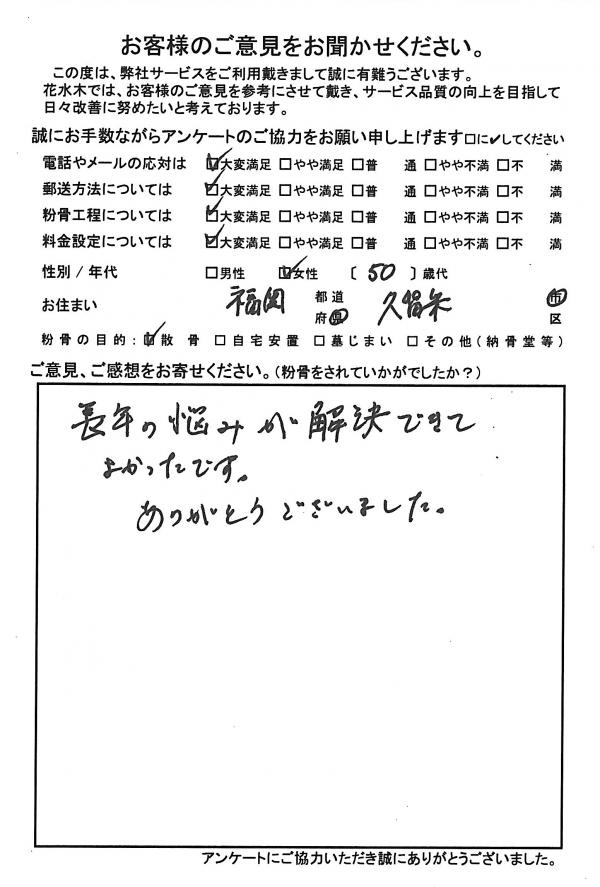 お客様のご意見をお聞かせください。
この度は、弊社サービスをご利用戴きまして誠に有難うございます。
花水木では、お客様のご意見を参考にさせて戴き、サービス品質の向上を目指して
日々改善に努めたいと考えております。
誠にお手数ながらアンケートのご協力をお願い申し上げます□に✓してください
電話やメールの応対は ☑大変満足 □やや満足 □普 通 □やや不満 □不 満
郵送方法については ☑大変満足 □やや満足 □普 通 □やや不満 □不 満
粉骨工程については ☑大変満足 □やや満足 □普 通 □やや不満 □不 満
料金設定については ☑大変満足 □やや満足 □普 通 □やや不満 □不 満
性別/年代 □男性 ☑女性 〔 50 〕歳代
お住まい 福岡 都道府県 久留米 市区
粉骨の目的: ☑散 骨 □自宅安置 □墓じまい □その他(納骨堂等)
ご意見、ご感想をお寄せください。(粉骨をされていかがでしたか?)
長年の悩みが解決できて
よかったです。
ありがとうございました。
アンケートにご協力いただき誠にありがとうございました。